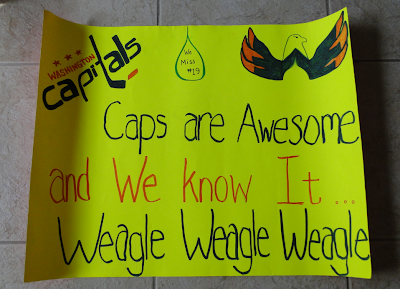 WASHINGTON
capitals
We
Miss
#19
Caps are Awesome
and We know It...
Weagle Weagle Weagle